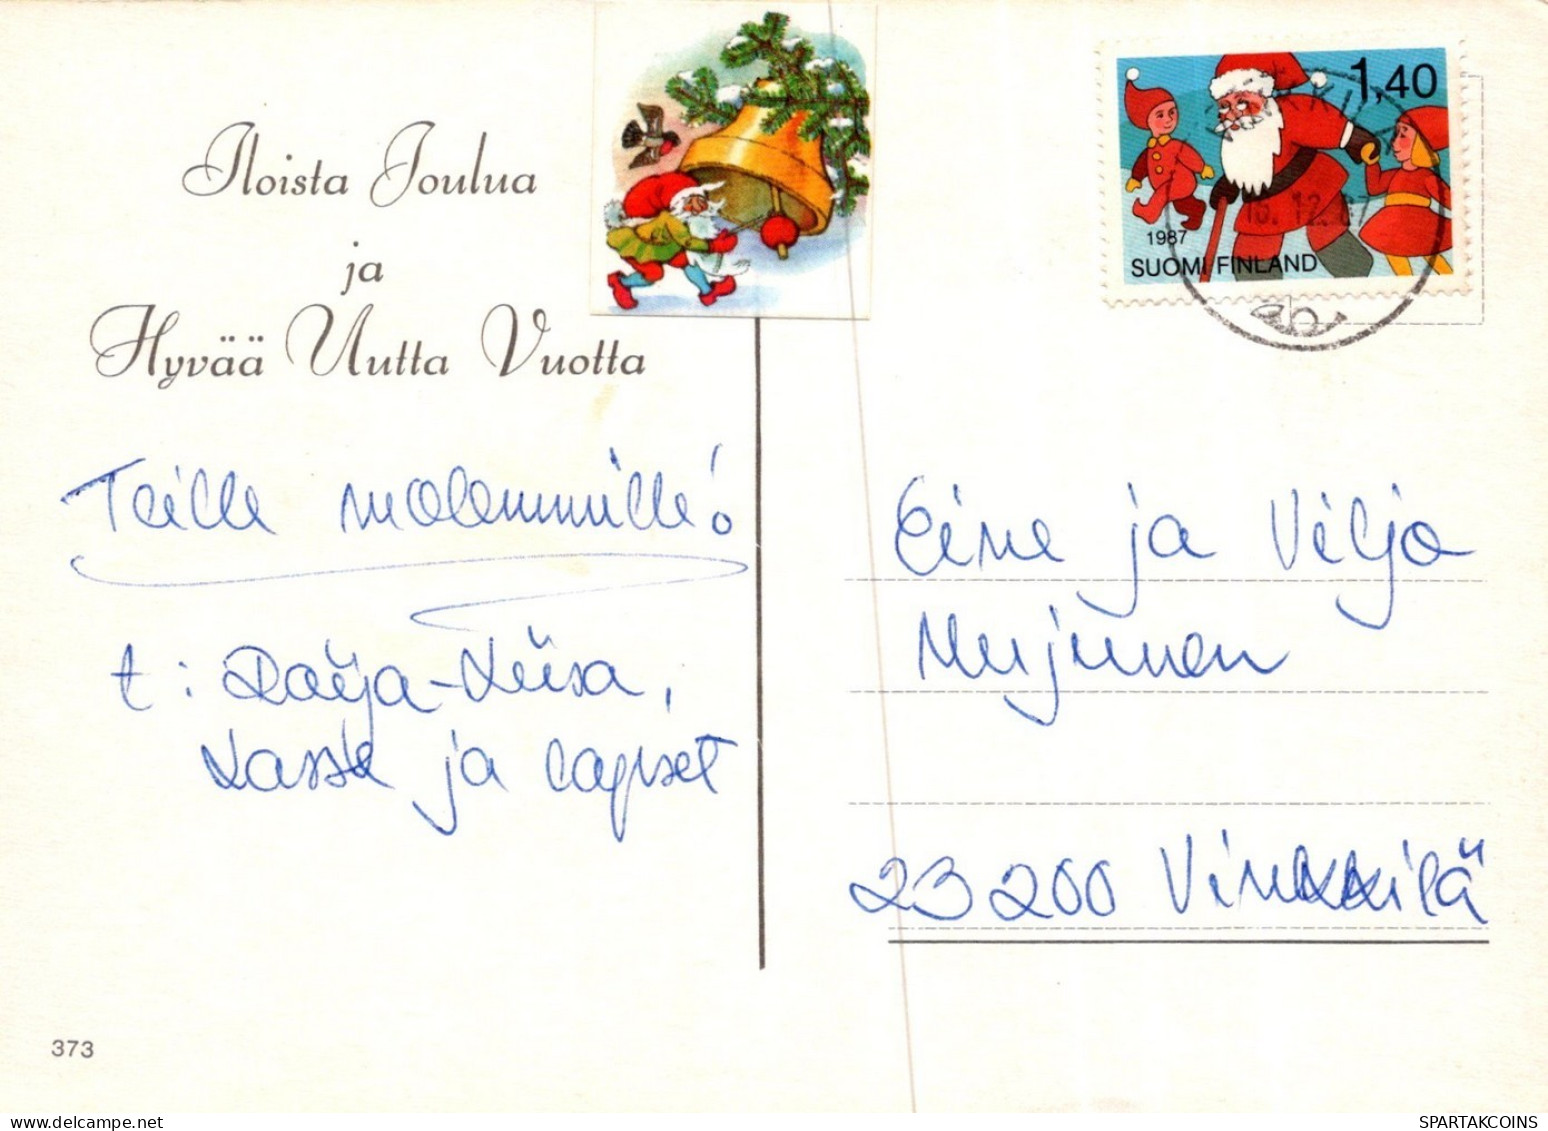 Iloista Joulua
ja
Hyvää Uutta Vuotta
Teille molemmille!
t: Raija-Liisa,
Lasse ja lapset
1,40
1987
SUOMI FINLAND
Eine ja Viljo
Nurjunen
23200 Vinkkilä
373
SPARTAKCOINS